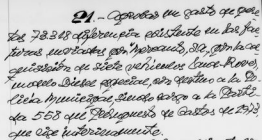 21.- Aprobar un gasto de pese-
tas 73.318 diferencia existente en las fac-
turas enviadas por Mercauto, SA, por la ad-
quisición de siete vehículos Land-Rover,
modelo Diesel especial, con destino a la Po-
licía Municipal, siendo cargo a la Parti-
da 558 del Presupuesto de Gastos de 1973,
que rige interinamente.